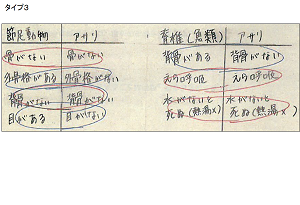 タイプ3
節足動物 アサリ
骨がない 骨がない
外骨格がある 外骨格がない
背骨がない 背骨がない
目がある 目がない
脊椎(魚類) アサリ
背骨がある 背骨がない
えら呼吸 えら呼吸
水がないと死ぬ(熱湯×) 水がないと死ぬ(熱湯×)